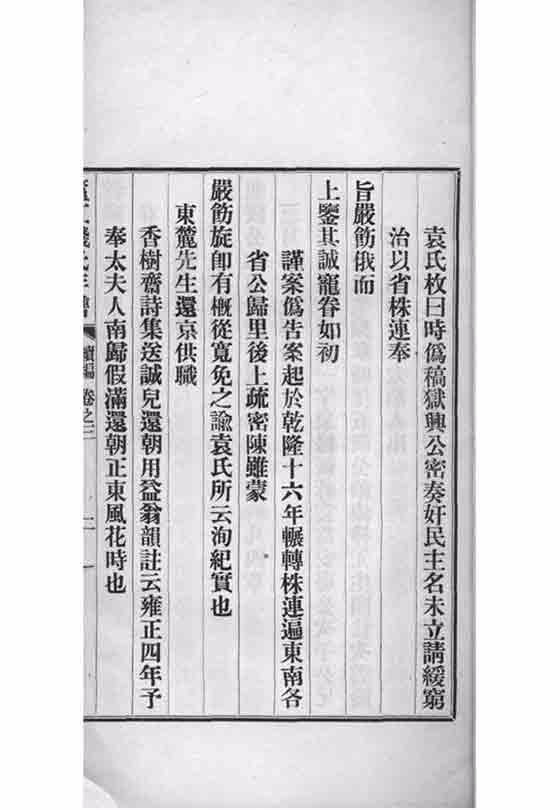 袁氏枚曰時僞稿獄興公密奏奸民主名未立請緩窮
治以省株連奉
旨嚴飭俄而
上鑒其誠寵眷如初
謹案僞告案起於乾隆十六年輾轉株連遍東南各
省公歸里後上疏密陳雖蒙
嚴飭旋卽有槪從寬免之諭袁氏所云洵紀實也
東麓先生還京供職
香樹齋詩集送誠兒還朝用益翁韻註云雍正四年予
奉太夫人南歸假滿還朝正東風花時也
續編 卷之三 二